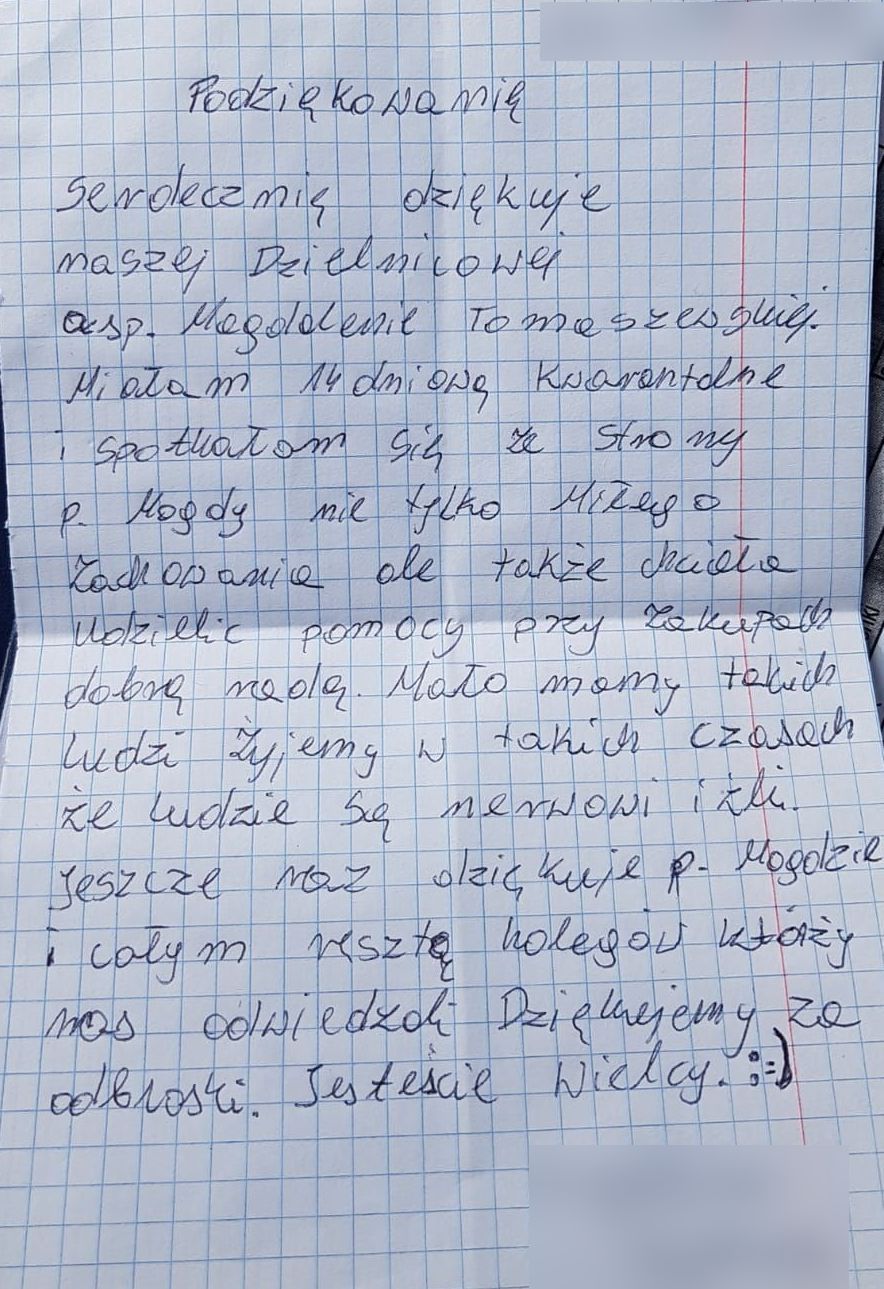 Podziękowanię
Serdecznię dziękuje
naszej Dzielnicowej
asp. Magdalenie Tomaszewskiej.
Miałam 14 dniową Kwarantdne
i spotkałam się ze strony
p. Magdy nie tylko Miłego
Zachowania ale także chciała
Udzielic pomocy przy Zakupach
dobrą radą. Mało mamy takich
ludzi Żyjemy w takich czasach
że ludzie są nerwowi i źli.
Jeszcze raz dziękuje p. Magdzie
i całym resztę kolegów któży
nas odwiedzali Dziękujemy za
odbroski. Jesteście Wielcy. :=)